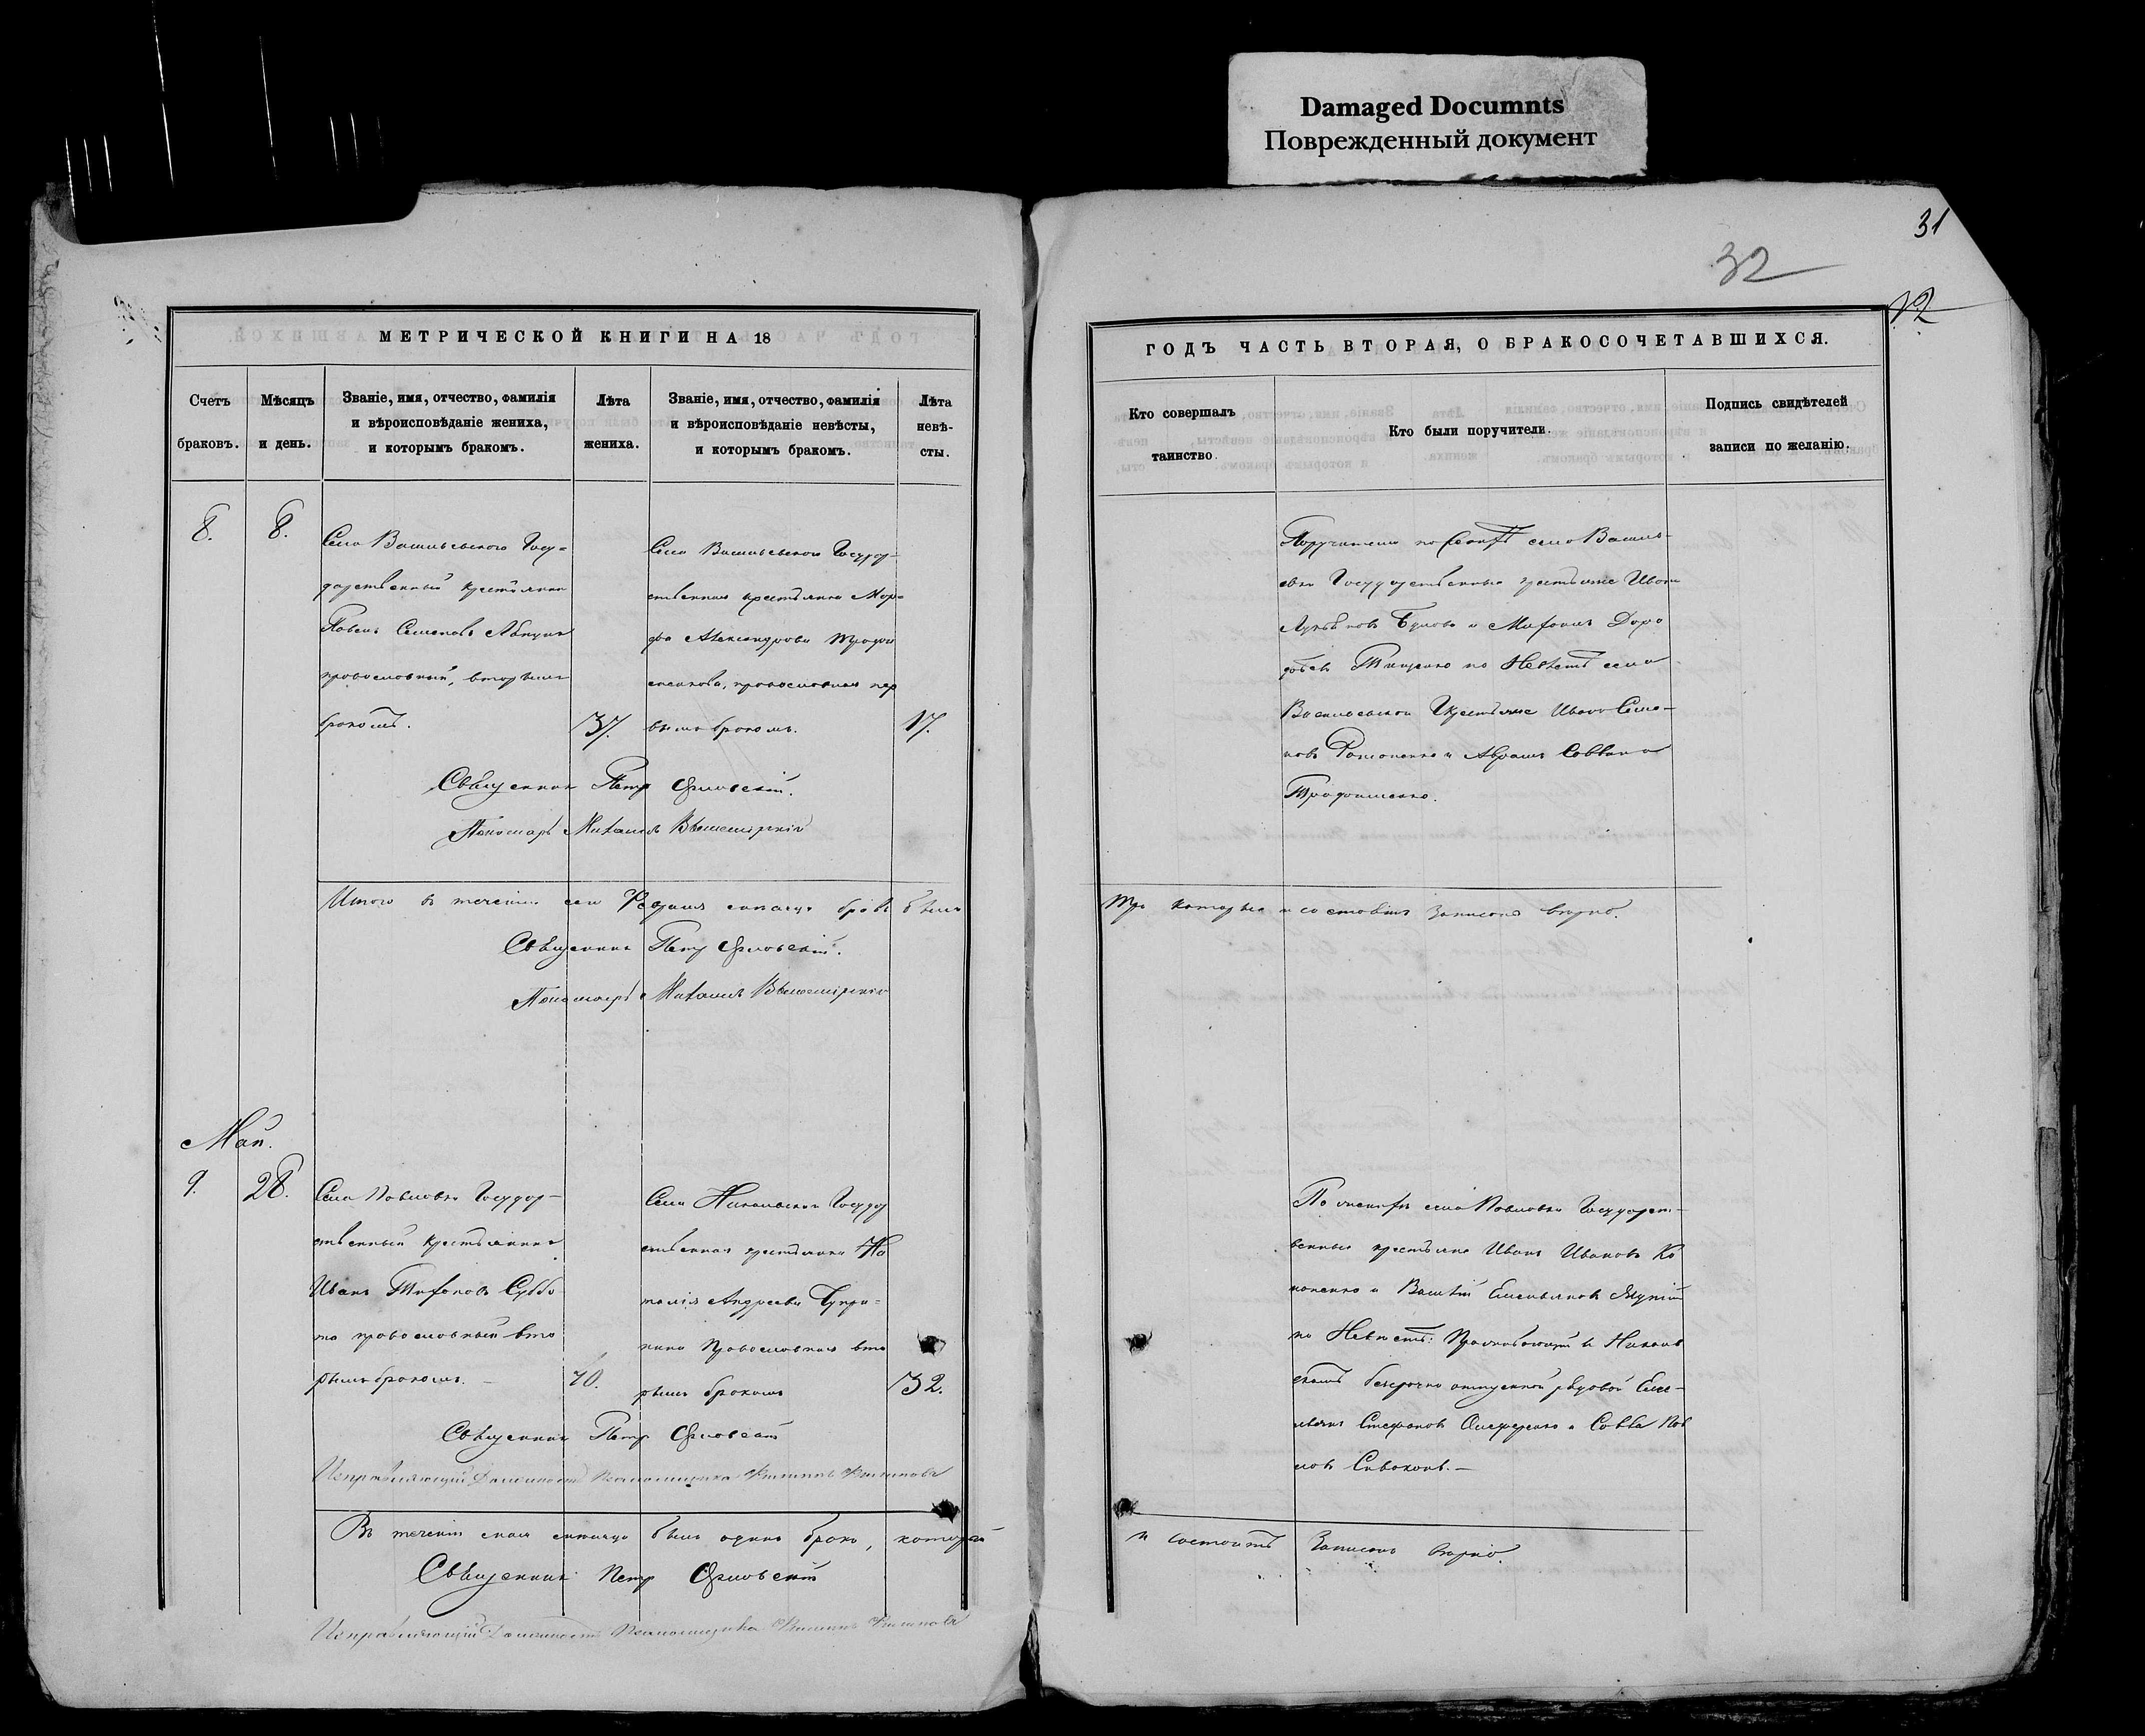 Damaged Documnts
Поврежденный документ
31
32
12
МЕТРИЧЕСКОЙ КНИГИ НА 18
Счетъ браковъ.
Мѣсяцъ и день.
Званіе, имя, отчество, фамилія
и вѣроисповѣданіе жениха,
и которымъ бракомъ.
Лѣта жениха.
Званіе, имя, отчество, фамилія
и вѣроисповѣданіе невѣсты,
и которымъ бракомъ.
Лѣта невѣ-
сты.
8.
8.
Села Васильевского Госу=
дарственный крестянинъ
Павелъ Семеновъ
православный, вторымъ
бракомъ.
37.
Села Васильевского Государ-
ственная крестянка Мар=
фа Александрова
православная пер
вымъ бракомъ.
17.
Священник Петр Орловскій.
Пономарь Михаилъ
Итого в течении сего Февраля месяца браков было
Священник Петр Орловскій.
Пономарь Михаилъ
Май.
9.
28.
Села Павловки Государ-
ственный крестьянинъ
Иванъ Трифоновъ Суббо
та православный вто
рымъ бракомъ.
40.
Села Никольского Государ
ственная крестьянка На
талія Андреева
православная вто
рымъ бракомъ
32.
Священник Петр Орловскій
Исправляющій Должность Псаломщика Филиппъ Филиповъ
Въ теченіи сего месяца былъ одинъ бракъ, который
Священник Петр Орловскій
Исправляющій Должность Псаломщика Филиппъ Филиповъ
ГОДЪ ЧАСТЬ ВТОРАЯ, О БРАКОСОЧЕТАВШИХСЯ.
Кто совершалъ
таинство.
Кто были поручители.
Подпись свидѣтелей
записи по желанію.
Поручители по села Василь-
евки Государственные крестьяне Иванъ
Лукьяновъ и Доро
феевъ по Невѣстѣ села
Васильевки крестьяне Иванъ Семе-
новъ и Абрамъ Саввинъ
три которые и состоятъ записаны верно.
По женихѣ села Павловки Государст-
венные крестьяне Иванъ Ивановъ Ко
ноненко и Василій Емельяновъ
по Невѣстѣ: Проживающій в Николь
скомъ безсрочно отпускной рядовой Еме-
льянъ Стефановъ и Савва Пав
ловъ
и состоитъ Записанъ верно.